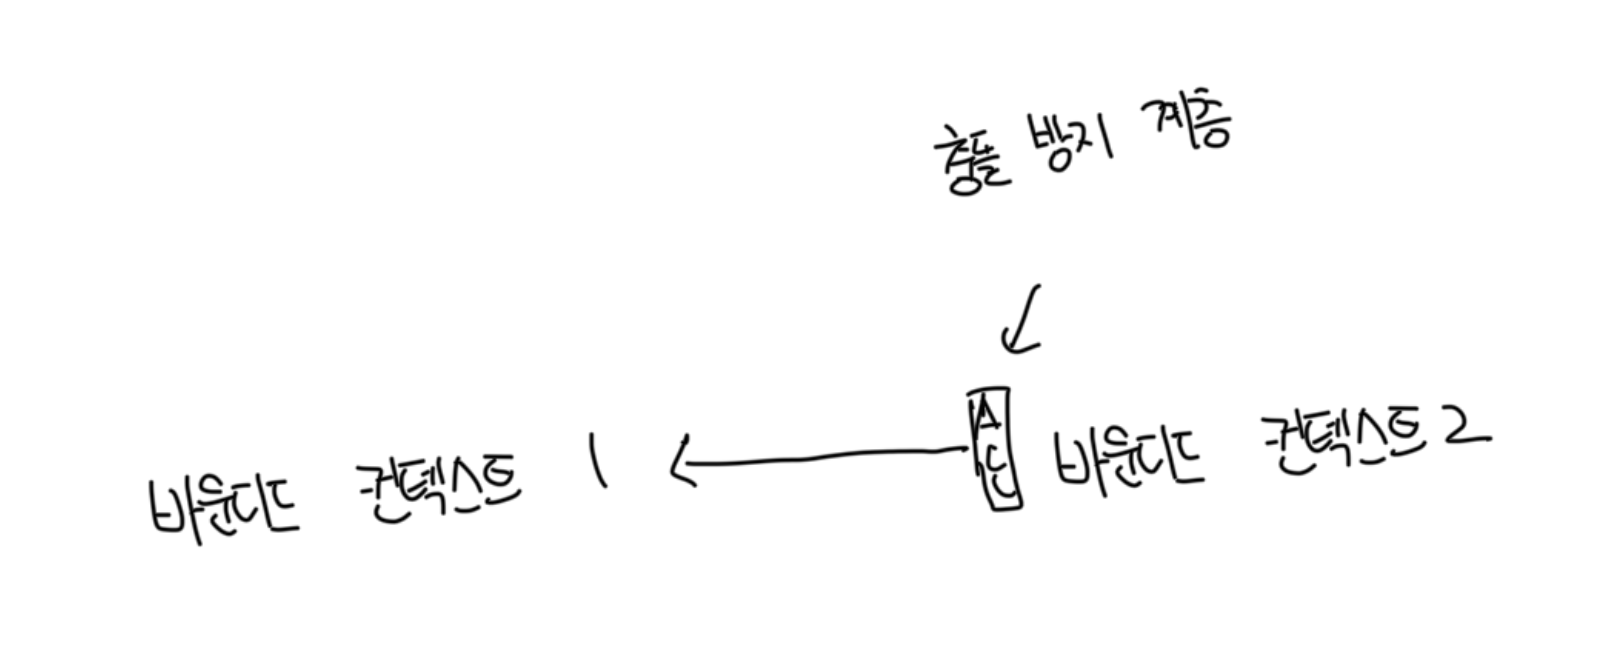 충돌 방지 계층
바운디드 컨텍스트 1
ACL
바운디드 컨텍스트 2